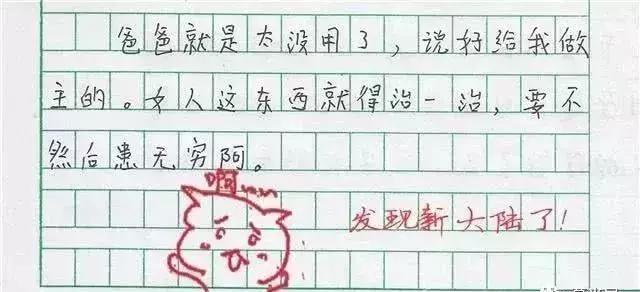 爸爸就是太没用了，说好给我做
主的。女人这东西就得治一治，要不
然后患无穷阿。
啊
发现新大陆了！